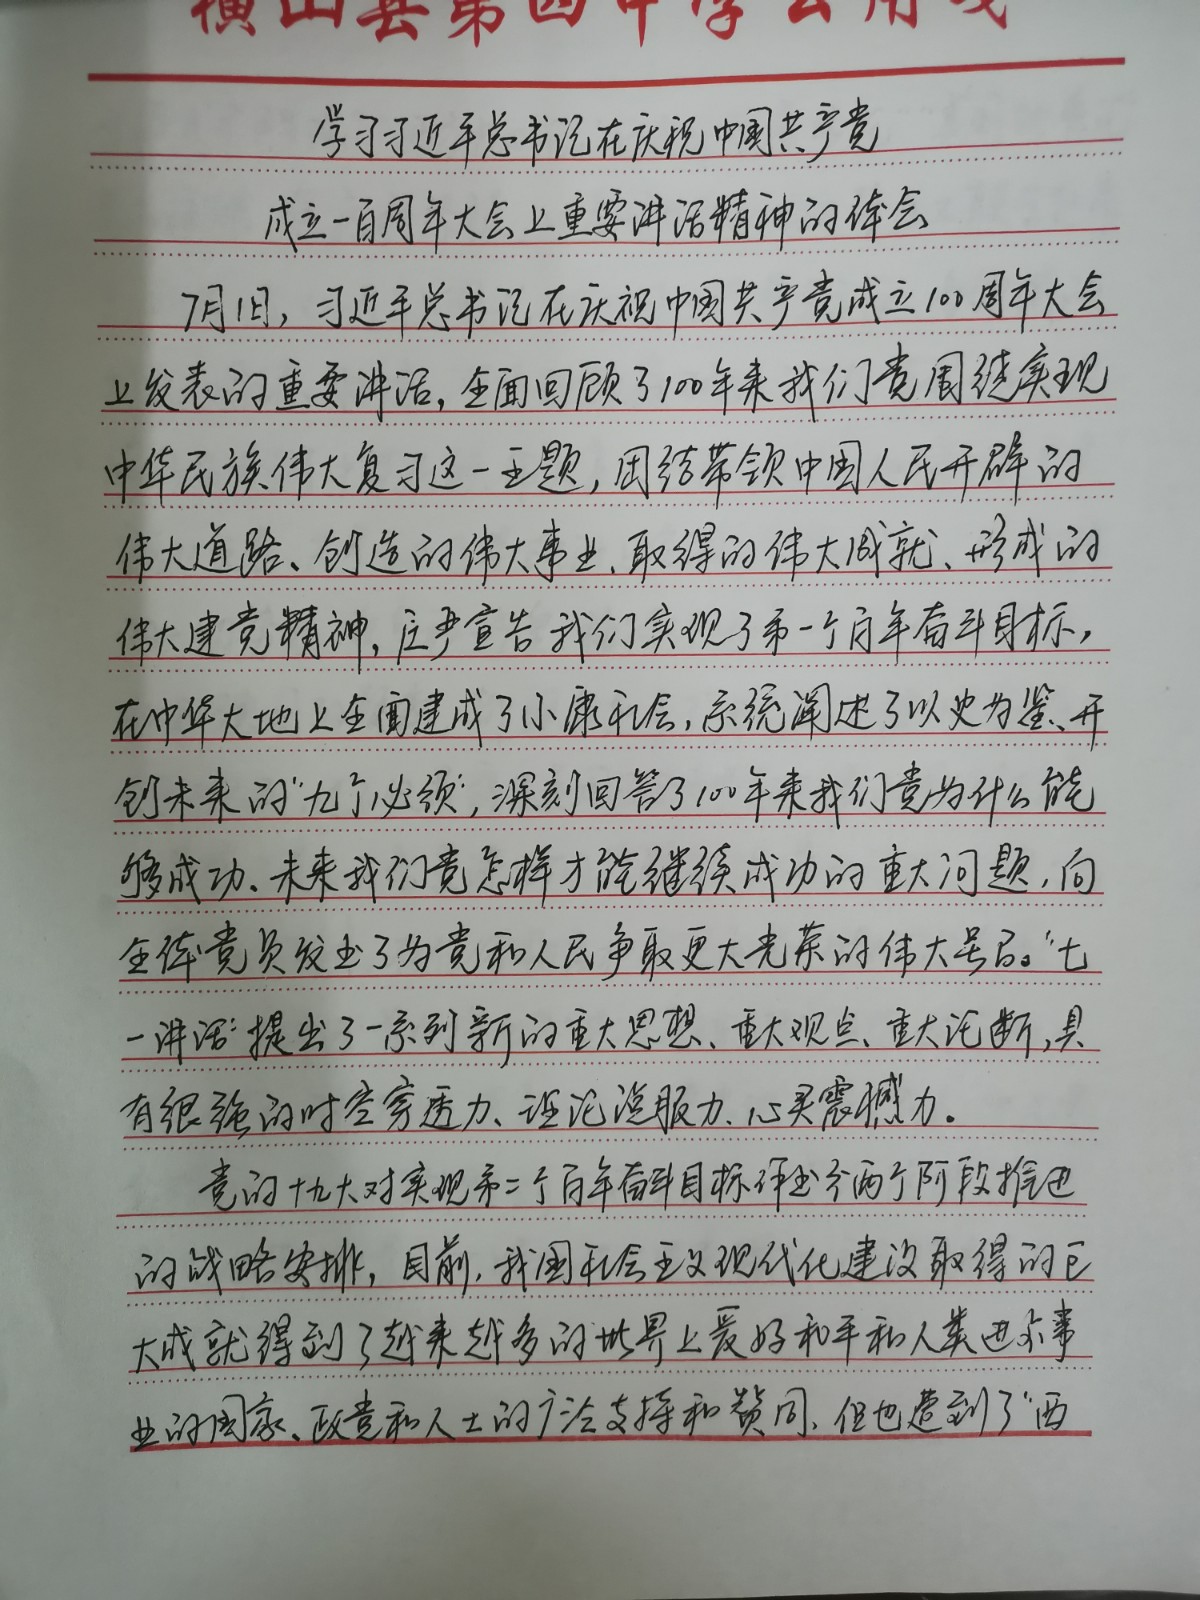 横山县第四中学公用笺
学习习近平总书记在庆祝中国共产党
成立一百周年大会上重要讲话精神的体会
7月1日，习近平总书记在庆祝中国共产党成立100周年大会
上发表的重要讲话，全面回顾了100年来我们党围绕实现
中华民族伟大复习这一主题，团结带领中国人民开辟的
伟大道路、创造的伟大事业、取得的伟大成就、形成的
伟大建党精神，庄严宣告我们实现了第一个百年奋斗目标，
在中华大地上全面建成了小康社会，系统阐述了以史为鉴、开
创未来的“九个必须”，深刻回答了100年来我们党为什么能
够成功、未来我们党怎样才能继续成功的重大问题，向
全体党员发出了为党和人民争取更大光荣的伟大号召。“七
一讲话”提出了一系列新的重大思想、重大观点、重大论断，具
有很强的时空穿透力、理论说服力、心灵震撼力。
党的十九大对实现第二个百年奋斗目标作出分两个阶段推进
的战略安排，目前，我国社会主义现代化建设取得的巨
大成就得到了越来越多的世界上爱好和平和人类进步事
业的国家、政党和人士的广泛支持和赞同，但也遭到了“西